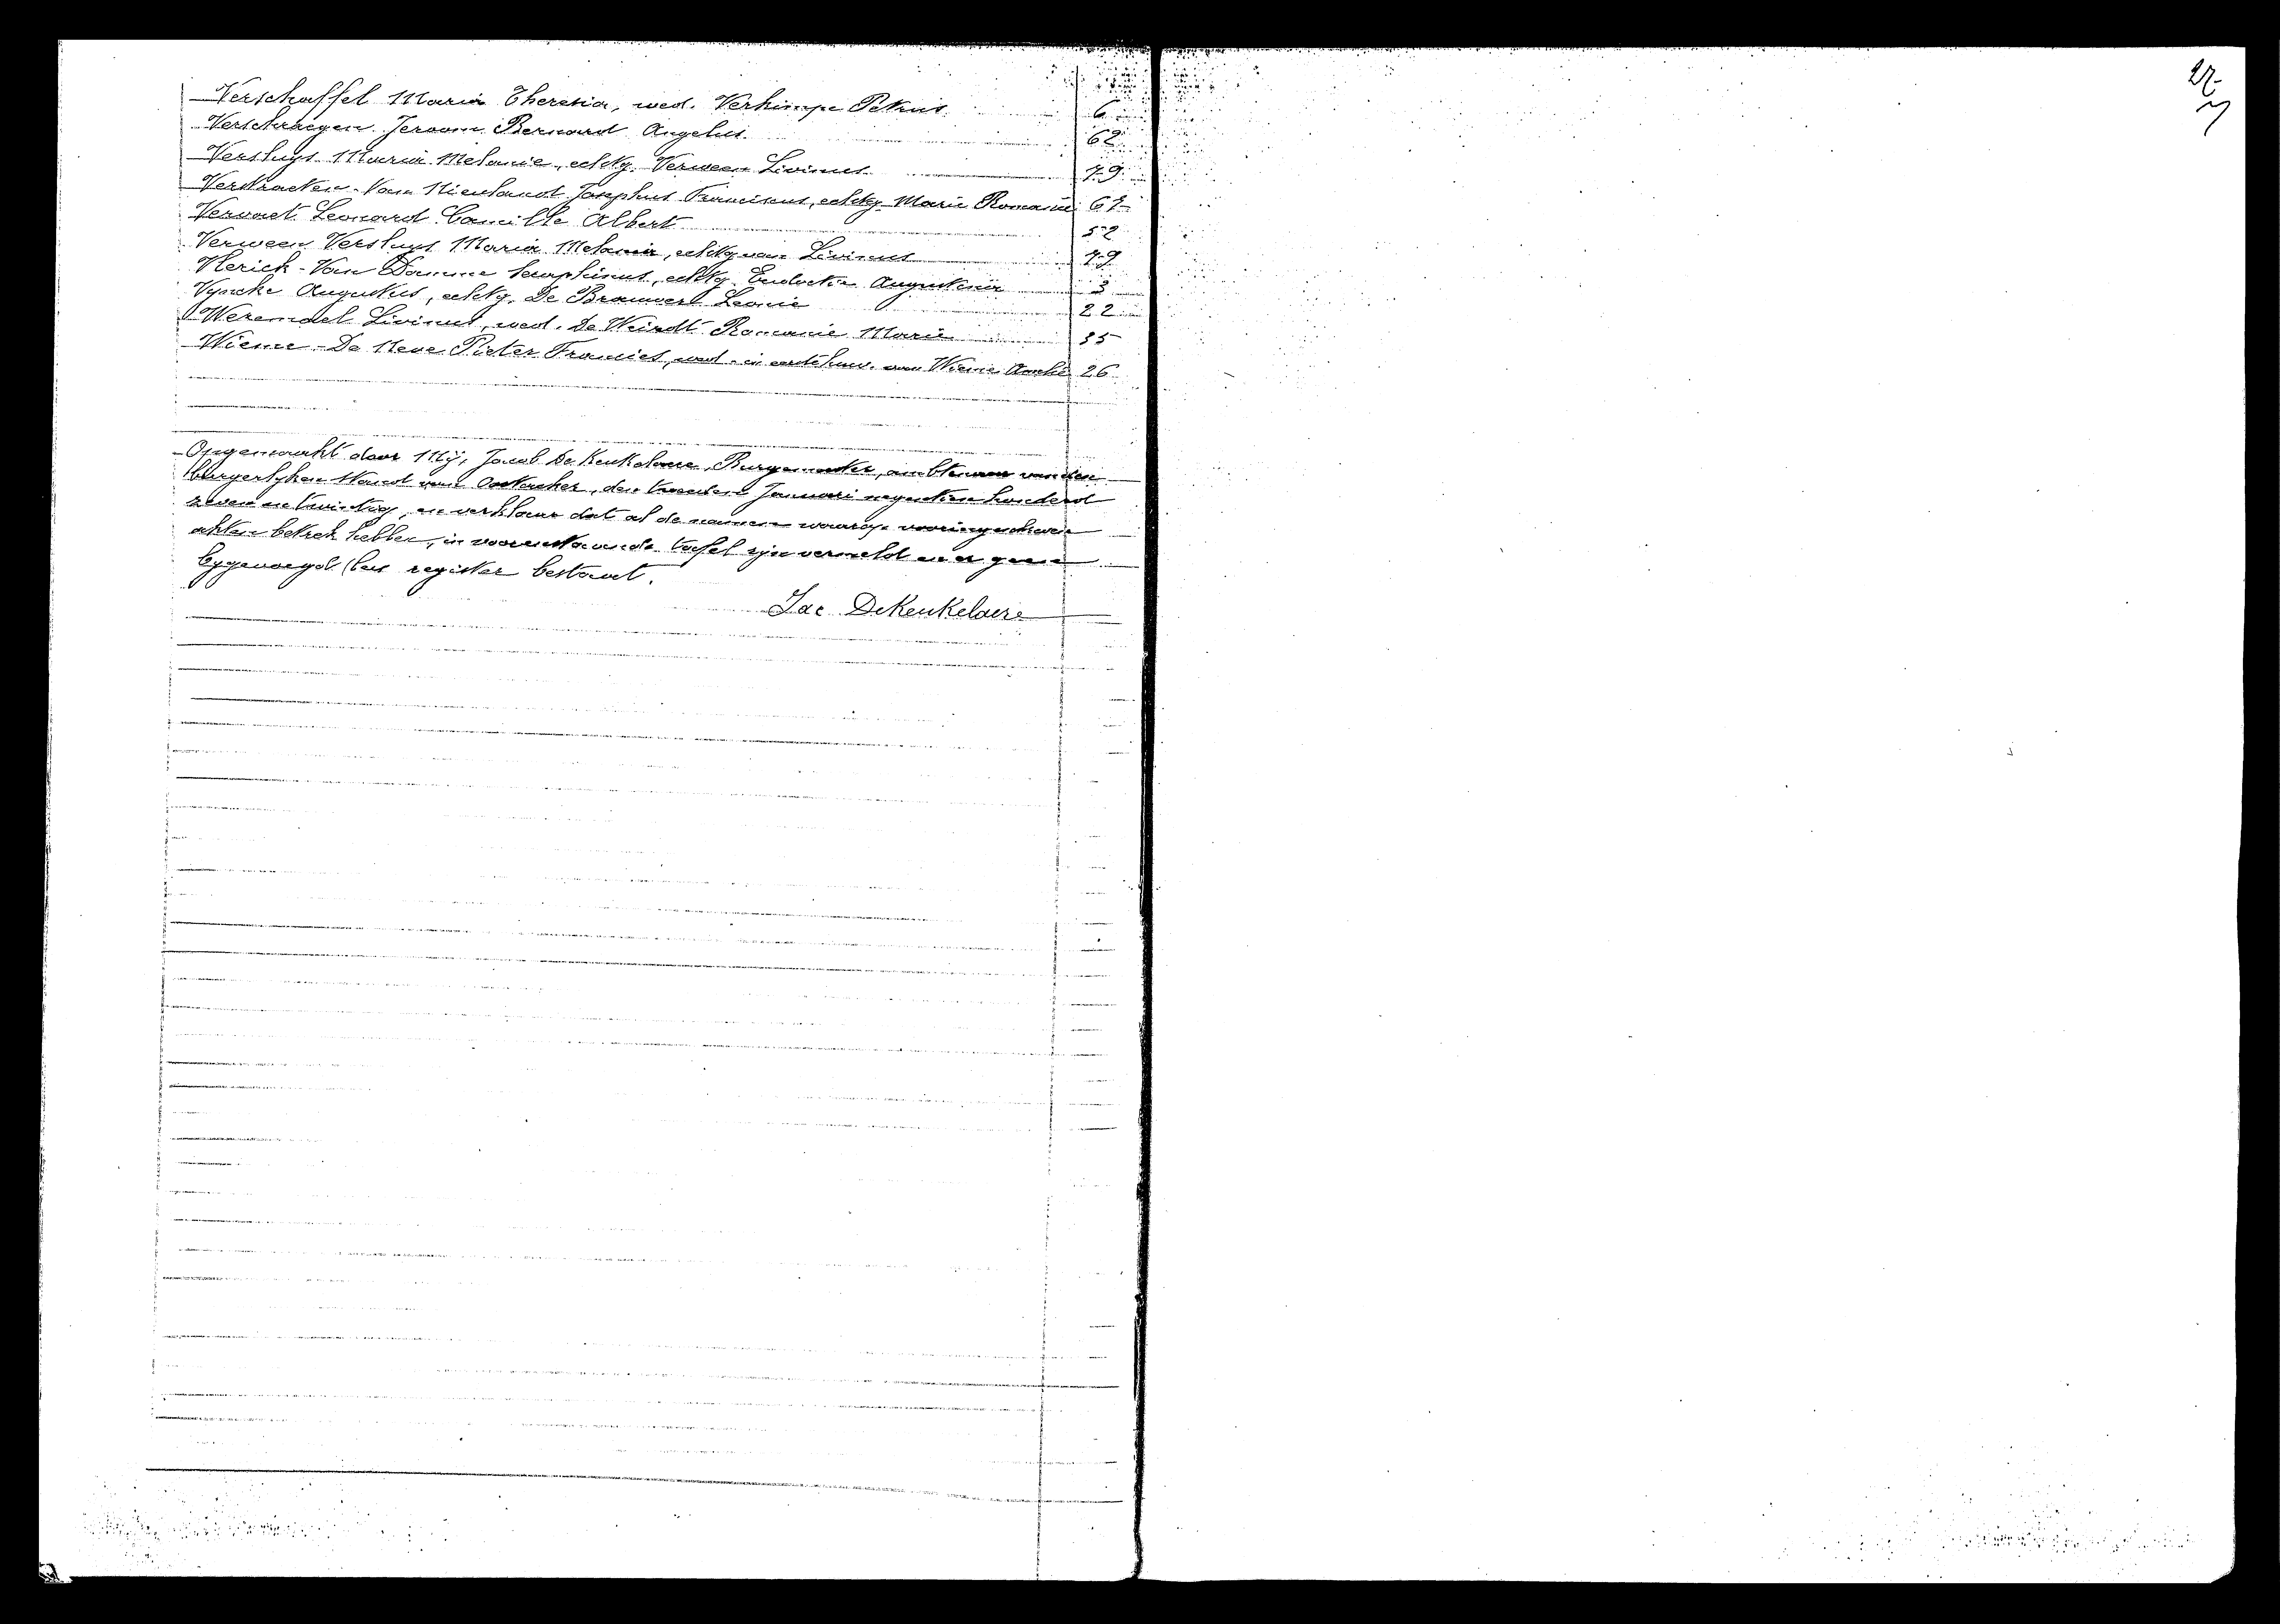 27
Verschaffel Maria Theresia, wed. Verhimpe Petrus 6
Verschraegen Jeroom Bernard Angelus 62
Versluys Maria Melanie, echtg. Verween Livinus 79
Verstraeten-Van Nieulandt Josephus Franciscus, echtg. Marie Romanie 67
Vervaet Leonard Camille Albert 52
Verween Versluys Maria Melanie, echtg van Livinus 79
Vlerick-Van Damme Seraphinus, echtg. Eudoxie Augustina 3
Vyncke Augustus, echtg. De Brauwer Leonie 22
Weremael Livinus, wed. De Weirdt Romanie Marie 35
Wieme-De Neve Pieter Francies, wed. in eerste huw. van Wieme Amelie 26
Opgemaakt door Mij, Jacob De Keukelaere, Burgemeester, ambtenaar van den
burgerlyken stand van Oostacker, den tweeden Januari negentien honderd
zeven en twintig, en verklaar dat al de namen waarop vooringeschreven
akten betrek hebben, in voorenstaande tafel zijn vermeld en er geen
bygevoegd (bis register bestaat.
Jac DeKeukelaere